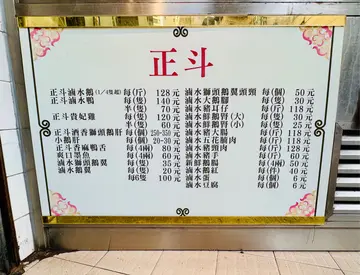 正斗
正斗滷水鵝(1/4隻起) 每(斤) 128元
正斗滷水鴨 每(隻) 140元
半(隻) 70元
正斗貴妃雞 每(隻) 120元
半(隻) 60元
正斗酒香獅頭鵝肝 每(個) 250-350元
小鵝肝 每(個) 20-30元
正斗香麻鴨舌 每(4兩) 80元
爽口墨魚 每(4兩) 60元
滷水獅頭鵝翼 每(隻) 35元
滷水鵝翼 每(隻) 20元
每6隻 100元
滷水獅頭鵝翼頭頸 每(個) 50元
滷水大鵝腳 每(隻) 30元
滷水豬耳仔 每(斤) 118元
滷水鮮鵝腎(大) 每(個) 30元
滷水鮮鵝腎(小) 每(個) 25元
滷水豬大腸 每(斤) 118元
滷水五花腩肉 每(斤) 118元
滷水豬頸肉 每(斤) 118元
滷水豬手 每(斤) 60元
新鮮鵝腸 每(4兩) 50元
滷水鵝紅 每(件) 40元
滷水蛋 每(個) 6元
滷水豆腐 每(個) 6元